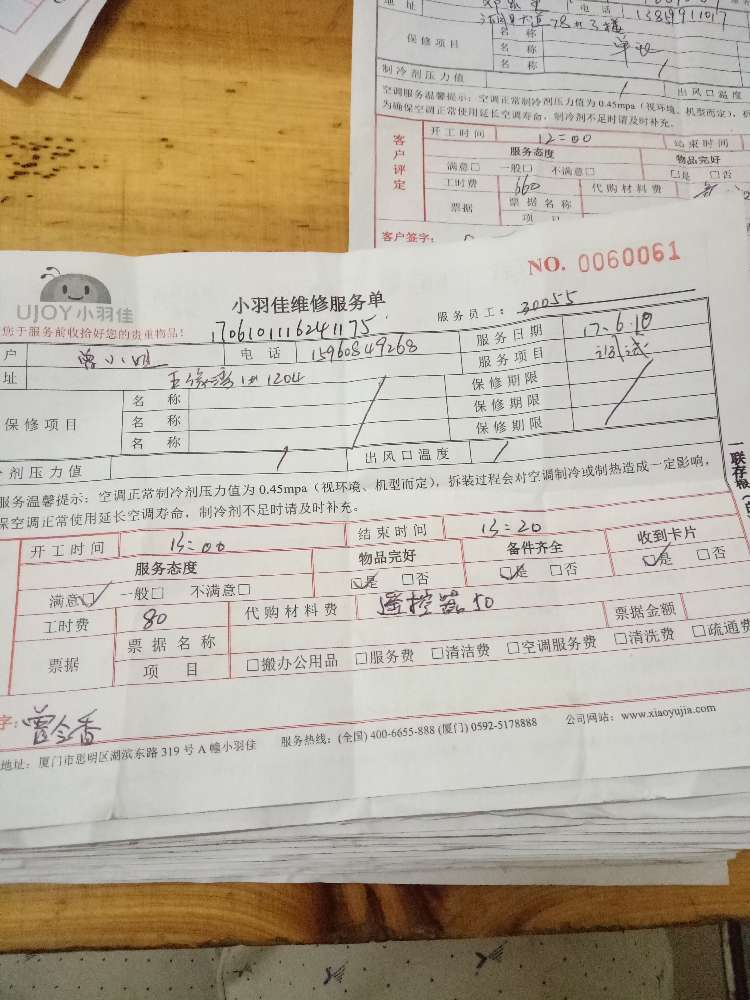 址 电话 13819911017
保修项目 名称
名称
名称
制冷剂压力值 出风口温度
空调服务温馨提示：空调正常制冷剂压力值为0.45mpa（视环境、机型而定），拆
为确保空调正常使用延长空调寿命，制冷剂不足时请及时补充。
客户评定 开工时间 12=00 结束时间
服务态度 物品完好
满意□ 一般□ 不满意□ □是 □否
工时费 660 代购材料费
票据 票据名称
项目
客户签字：
NO. 0060061
UJOY小羽佳 小羽佳维修服务单 服务员工：30055
您于服务前收拾好您的贵重物品！ 1706101116241175
户 曾小姐 电话 15960849268 服务日期 17.6.10
址 1204 服务项目 调试
保修项目 名称 保修期限
名称 保修期限
名称 保修期限
剂压力值 / 出风口温度 /
服务温馨提示：空调正常制冷剂压力值为0.45mpa（视环境、机型而定），拆装过程会对空调制冷或制热造成一定影响，
保空调正常使用延长空调寿命，制冷剂不足时请及时补充。
一联存根
开工时间 15=00 结束时间 15=20
服务态度 物品完好 备件齐全 收到卡片
满意☑ 一般□ 不满意□ ☑是 □否 ☑是 □否 ☑是 □否
工时费 80 代购材料费 遥控器50 票据金额
票据 票据名称
项目 □搬办公用品 □服务费 □清洁费 □空调服务费 □清洗费 □疏通费
字：曾令香
地址：厦门市思明区湖滨东路319号A幢小羽佳 服务热线：(全国) 400-6655-888 (厦门) 0592-5178888 公司网站：www.xiaoyujia.com